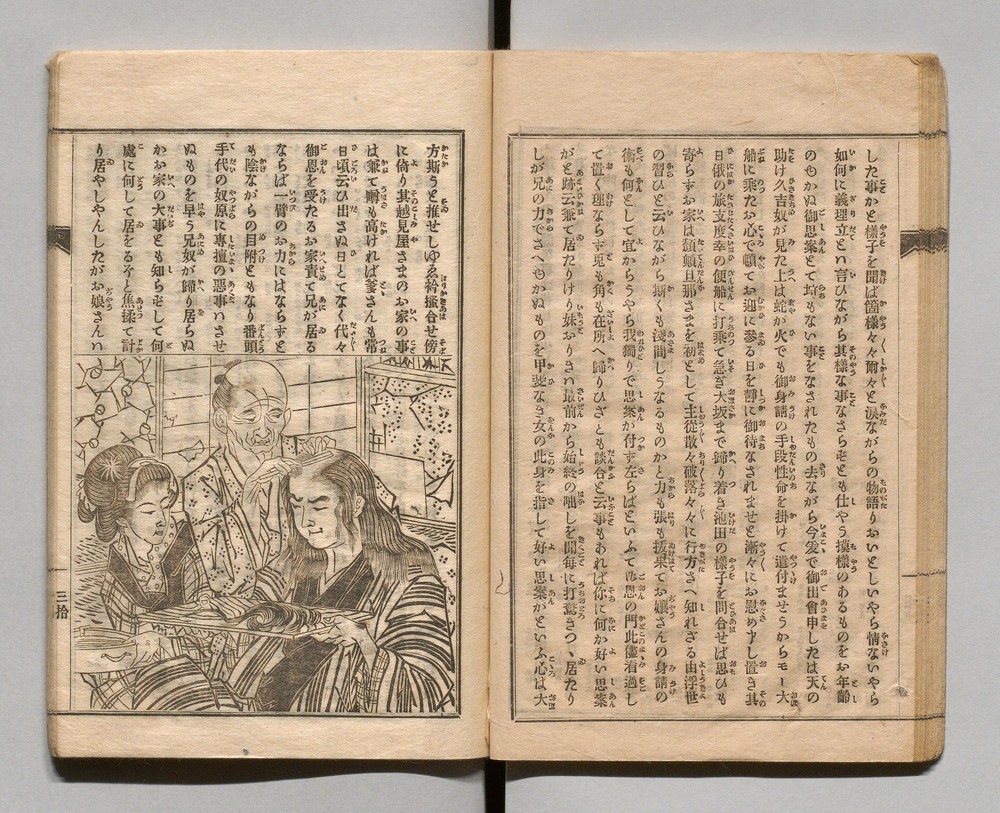 した事かと様子を聞ば箇様々々爾々と涙ながらの物語りおいとしいやら情ないやら
如何に義理立とい言ひながら其様な事なさらずとも仕やう摸様のあるものをお年齢
のゆかぬ御思案とて埒もない事をなされたもの去ながら今爰で御出會申したは天の
助け久吉奴が見た上は蛇が火でも御身請の手段性命を掛けて遣付ませうからモー大
船に乘たお心で頓てお迎に參る日を靜に御待なされませと漸々にお慰め申し置き其
日俄の旅支度幸の便船に打乘て急ぎ大坂まで歸り着き池田の樣子を問合せば思ひも
寄らずお家は頽頓旦那さまを初として主從散々破落々々に行方さへ知れざる由浮世
の習ひと云ひながら斯くも淺間しうなるものかと力も張も拔果てお孃さんの身請の
術も何として宜からうやら我獨りで思案が付ず左らばといふて御恩の門此儘看過し
て置く理ならず兎も角も在所へ歸りひざとも談合と云事もあれば你に何か好い思案
がと跡云兼て居たりけり妹おりきハ最前から始終の咄しを聞毎に打驚きつゝ居たり
しが兄の力でさへゆかぬものを甲斐なき女の此身を指して好い思案がといふ心は大
方斯うと推せしゆゑ衿搔合せ傍
に倚り其越見屋さまのお家の事
は兼て噂も高ければ爹さんも常
日頃云ひ出さぬ日とてなく代々
御恩を受たるお家責て兄が居る
ならば一臂のお力にはならずと
も陰ながらの目附ともなり番頭
手代の奴原に專擅の惡事いさせ
ぬものを早う兄奴が歸り居らぬ
かお家の大事とも知らずして何
處に何して居をるぞと焦燥て計
り居やしやんしたがお娘さんハ
三拾